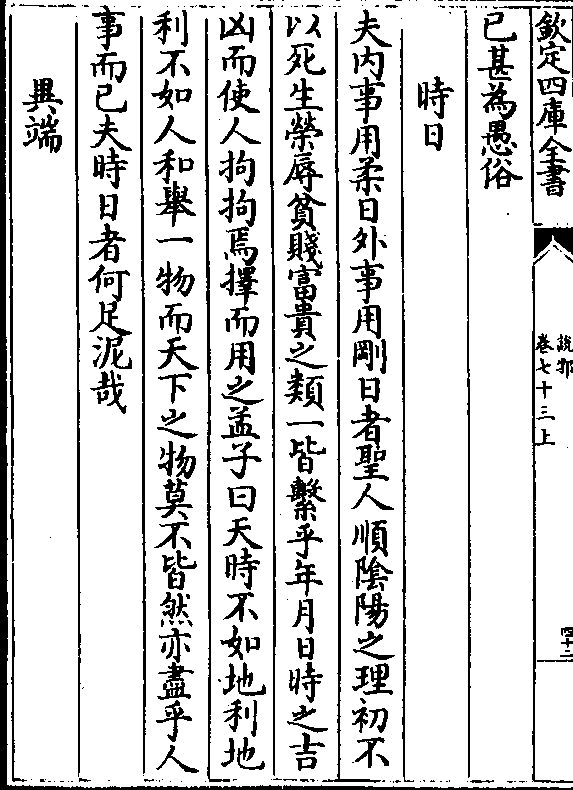 欽定四庫全書
說郛
卷七十三上
四十二
已甚為愚俗
時日
夫內事用柔日外事用剛日者聖人順陰陽之理初不
以死生榮辱貧賤富貴之類一皆繫乎年月日時之吉
凶而使人拘拘焉擇而用之孟子曰天時不如地利地
利不如人和舉一物而天下之物莫不皆然亦盡乎人
事而已夫時日者何足泥哉
異端